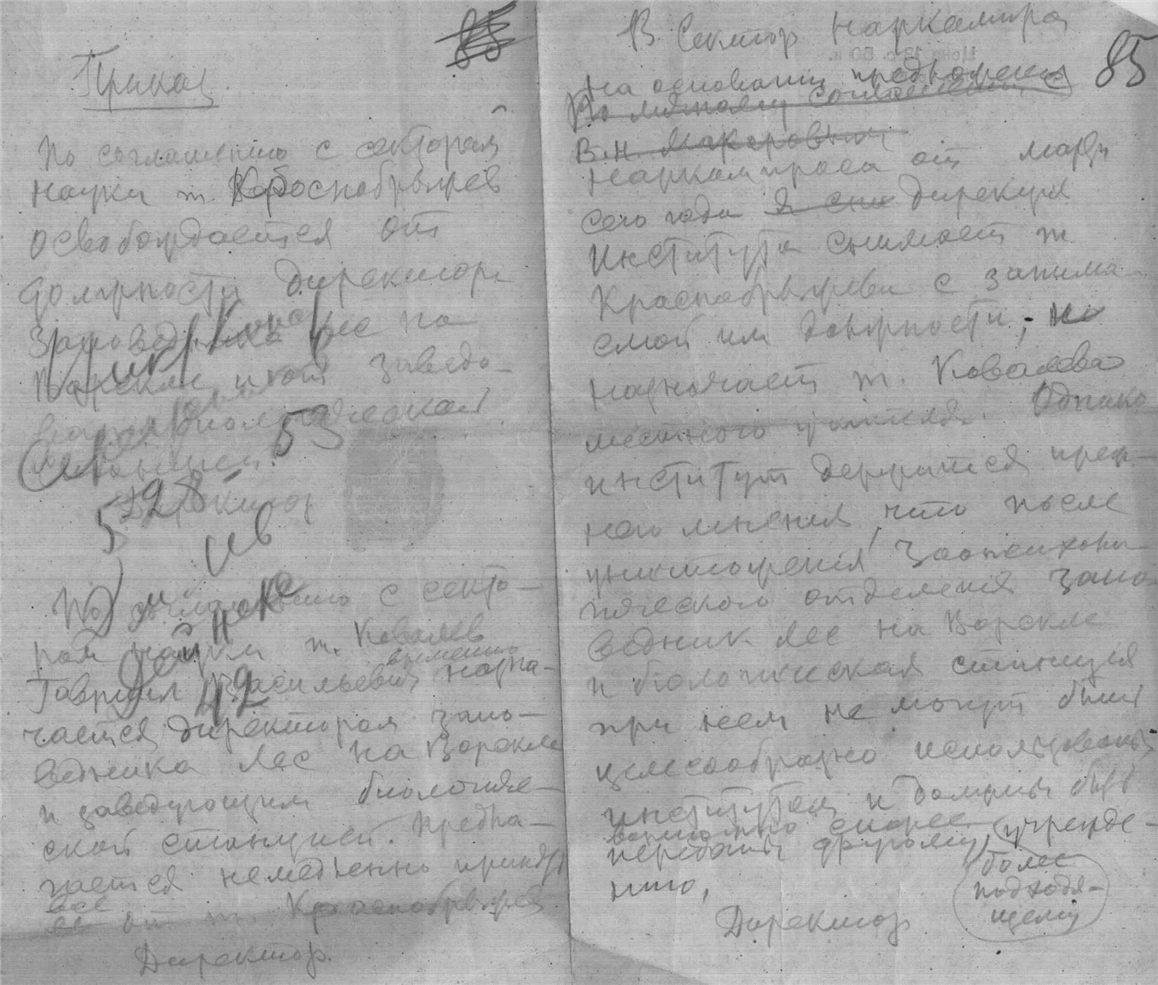 85
Приказ
По соглашению с сектором
науки т. Краснобрыжев
освобождается от
должности директора
Заповедника Лес на
Ворскле и от заведо-
вания биологической
станцией.
53
528
Директор
По соглашению с секто-
ром науки т. Ковалев
временно
Гавриил Васильевич назна-
42
чается директором запо-
ведника Лес на Ворскле
и заведующим биологиче-
ской станцией. Предла-
гается немедленно принять
все
от т. Краснобрыжев
Директор.
В Сектор Наркомпроса
85
На основании предложения
По личному соглашению с
В.Н. Макаровым
Наркомпроса от марта
сего года я сни дирекция
Института снимает т
Краснобрыжева с занима-
емой им должности; но
назначает т. Ковалева
местного учителя. Однако
институт держится преж-
него мнения, что после
уничтожения Зоопсихоло-
гического отделения Запо-
ведник Лес на Ворскле
и биологическая станция
при нем не могут быть
целесообразно использованы
институтом и должны быть
возможно скорее
переданы другому, учрежде-
более
подходя-
щему
нию,
Директор